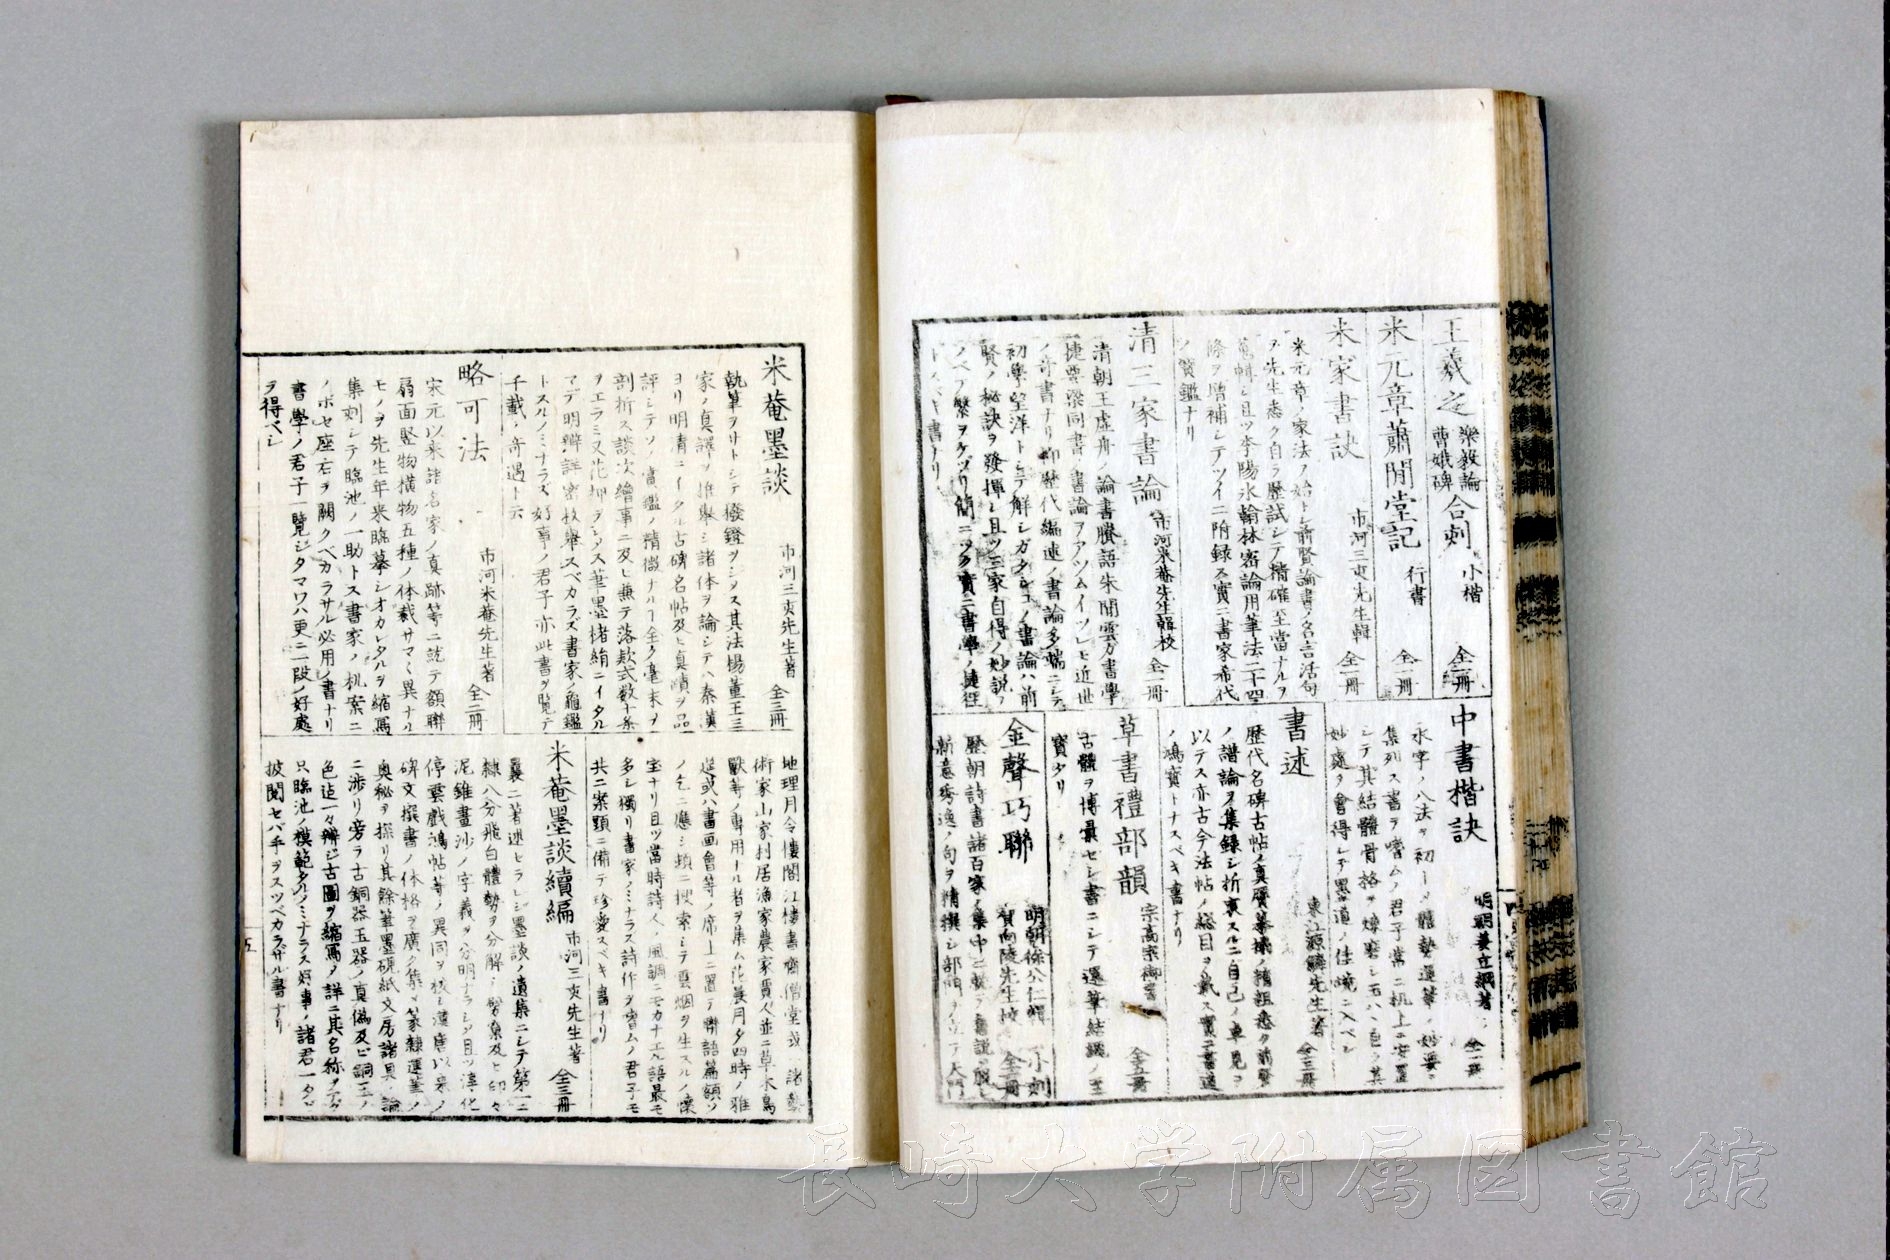 王羲之 樂毅論 曹娥碑 合刻 小楷 全一冊
米元章蕭閒堂記 行書 全一冊
米家書訣 市河三亥先生輯 全一冊
米元章ノ家法ヲ始トシ前賢論書ノ名言活句
ヲ先生悉ク自ラ歷試シテ楷確至當ナルヲ
萬輯シ且ツ李陽氷翰林密論用筆法二十四
條ヲ增補シテツイニ附録ス實ニ書家希代
ノ寶鑑ナリ
清三家書論 市河米菴先生輯校 全一冊
清朝王虚舟ノ論書賸語朱閒雲方書學
捷要梁同書ノ書論ヲアツム
ノ奇書ナリ抑歷代編述ノ書論多端ニシテ
初學望洋トシテ解シガタシ此ノ書論ハ前
賢ノ秘訣ヲ發揮シ且ツ三家自得ノ妙説ヲ
ノベヲ繁ヲケヅリ簡ニツク實ニ書學ノ捷徑
トスベキ書ナリ
中書楷訣 明姜立綱著 全一冊
永字ノ八法ヲ初一メ體勢運筆ノ妙要ヲ
集列ス書ヲ嗜ムノ君子常ニ机上ニ安置
シテ其結體骨格ヲ
妙處ヲ會得シテ墨道ノ佳境ニ入ベシ
書述 東江源鱗先生著 全三冊
歷代名碑古帖ノ真贋摹搨ノ精粗悉ク前賢
ノ譜論ヲ集録シ折衷スルニ自己ノ卓見ヲ
以テス亦古今法帖ノ總目ヲ載ス實ニ書道
ノ鴻寶トナスベキ書ナリ
草書禮部韻 宗高宗御書 全五冊
古體ヲ博彙セシ書ニシテ運筆結繩ノ至
寶ナリ
金聲巧聯 明朝徐公仁輯 賀向陵先生校 小刻 全一冊
歷朝詩書諸百家ノ集中ニ
新意秀逸ノ句ヲ精撰シ部門ヲ立テ天門
米菴墨談 市河三亥先生著 全三冊
執筆ヲサトシテ撥鐙ヲシメス其法楊董王三
家ノ真譯ヲ推擧シ諸体ヲ論シテハ秦漢
ヨリ明清ニイタル古碑名帖及ヒ真蹟ヲ品
評シテソノ賞鑑ノ精微ナルヿ全ク毫末ヲ
剖折ス談次繪事ニ及ヒ無テ落款式數十条
ヲエラミ又花押ヲシメス筆墨楮絹ニイタル
マデ明辨詳密枚擧スベカラズ書家ノ龜鑑
トスルノミナラズ好事ノ君子亦此書ヲ覽テ
千載ノ奇遇ト云
略可法 市河米菴先生著 全二冊
宋元以来諸名家ノ真跡等ニ就テ額聯
扇面竪物横物五種ノ体裁サマ〱異ナル
モノヲ先生年来臨摹シオカレタルヲ縮寫
集刻シテ臨池ノ一助トス書家ノ机案ニ
ノボセ座右ヲ闕クベカラサル必用ノ書ナリ
書學ノ君子一覽シタマワハ更ニ二段ノ好處
ヲ得ベシ
地理月令樓閣江樓書齋僧堂或ハ諸藝
術家山家村居漁家農家賈人並ニ草木鳥
獸等ノ專用ナル者ヲ集ム花晨月夕四時ノ雅
筵或ハ書画會等ノ席上ニ置テ聯語篇額ソ
ノ乞ニ應シ類ニ搜索シテ雲烟ヲ生スルノ懷
宝ナリ且ツ當時詩人ノ風調ニモカナエル語最モ
多シ獨リ書家ノミナラス詩作ヲ嗜ムノ君子モ
共ニ案頭ニ備テ珍愛スベキ書ナリ
米菴墨談續編 市河三亥先生著 全三冊
曩ニ著述セラレシ墨談ノ遺集ニシテ第一ニ
隸八分飛白體勢ヲ分解シ
泥錐畫沙ノ字義ヲ分明ナラシメ且ツ淳化
停雲戲鴻帖等ノ異同ヲ校シ漢唐以来ノ
碑文撰書ノ体格ヲ廣ク集メ篆隸運筆ノ
奥秘ヲ探リ其餘筆墨硯紙文房諸具ノ論
ニ渉リ旁ラ古銅器玉器ノ真偽及ビ銅玉ノ
色迠一々辨シ古圖ヲ縮寫ヲ詳ニ其名称ヲ
只臨池ノ模範タルノミナラス好事ノ諸君一タビ
披閲セバ手ヲスツベカラザル書ナリ
五
長崎大学附属図書館